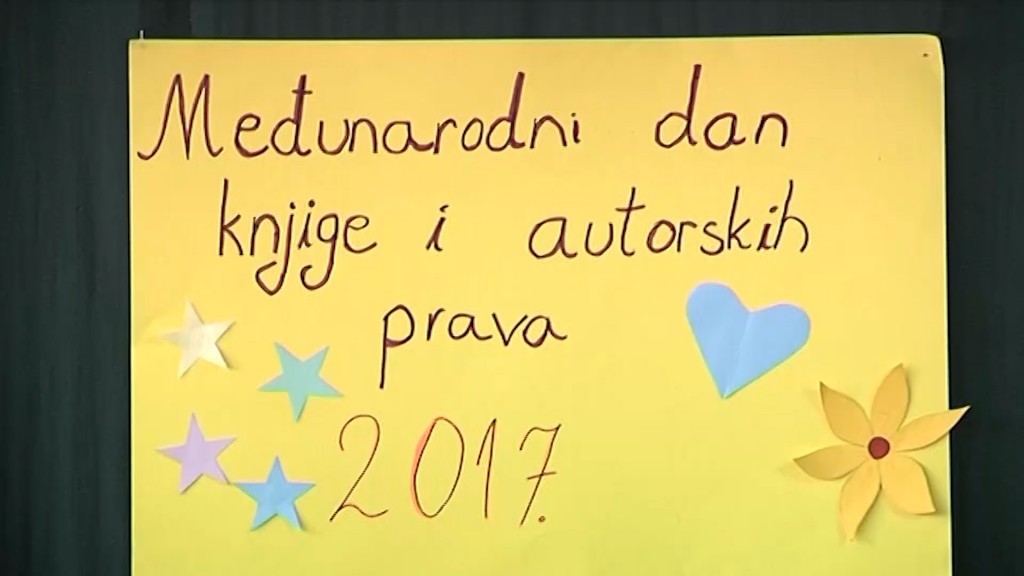 Međunarodni dan
knjige i autorskih
prava
2017.